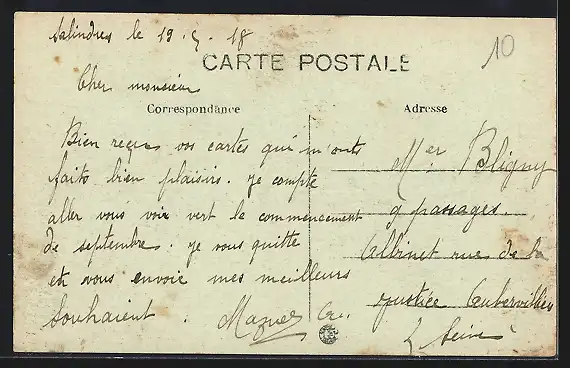 Salindres le 19. 5. 18
CARTE POSTALE
10
Cher monsieur
Correspondance
Adresse
Bien reçus vos cartes qui m'onts
faits bien plaisirs. Je compte
aller vous voir vert le commencement
de septembre. je vous quitte
et vous envoie mes meilleurs
Souhaient.
Mer Bligny
9 passages.
Albinet rue de la
justice Aubervilliers
Seine